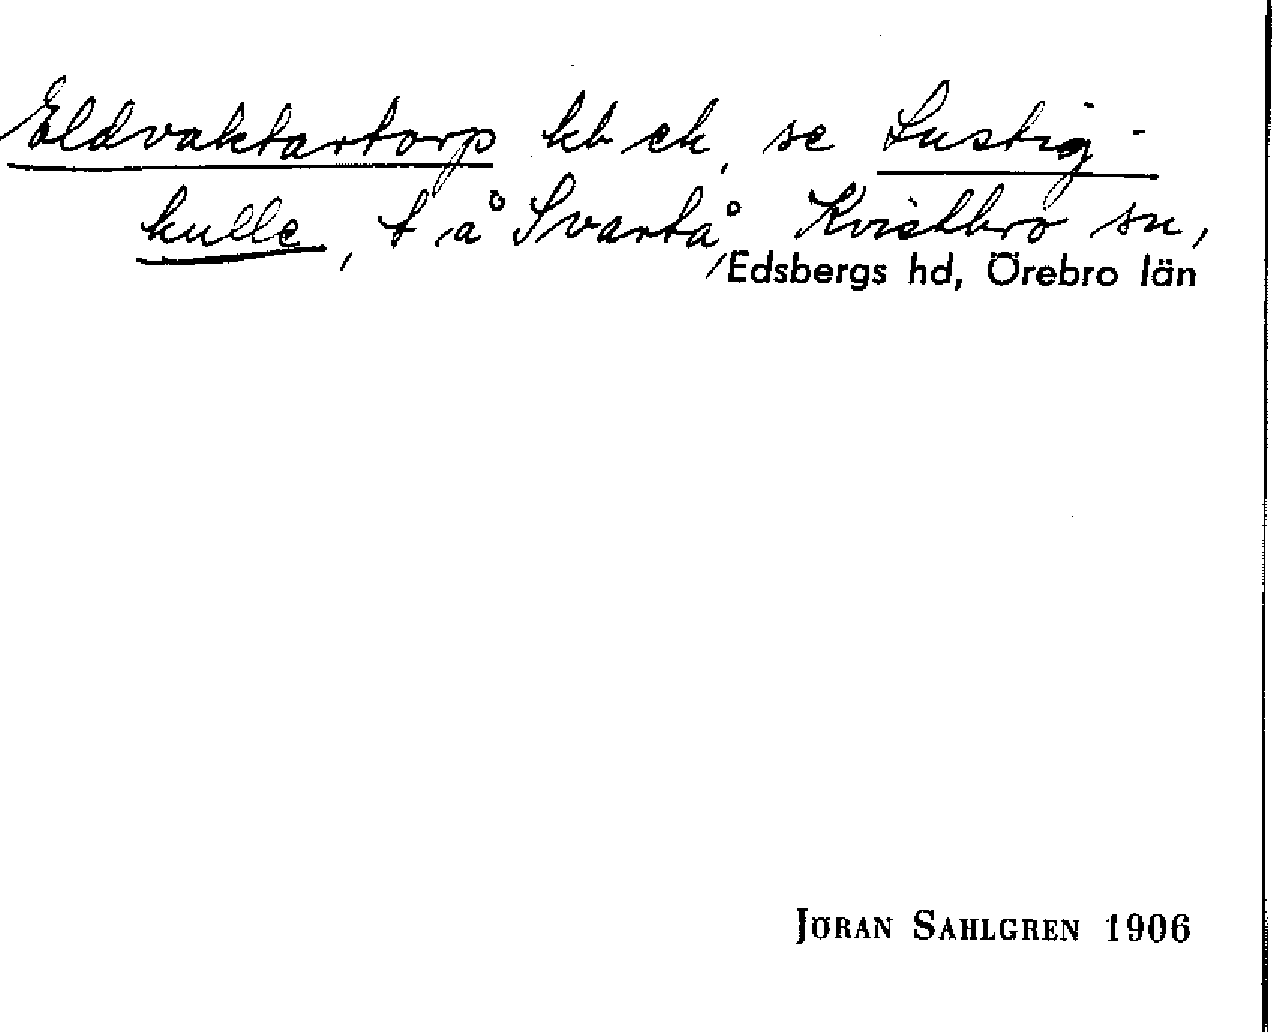 Eldvaktartorp kb ek, se Lustig-
kulle, t å Svartå Kvistbro sn,
Edsbergs hd, Örebro län
JÖRAN SAHLGREN 1906